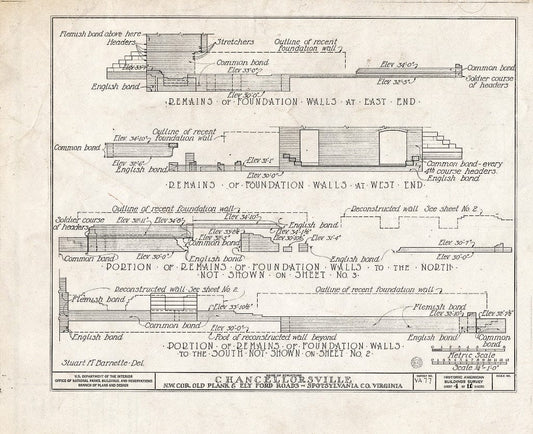 Flemish bond above here
Headers
Stretchers
Outline of recent
foundation wall
Elev 33'-
Common bond
Elev 33'-0"
Elev 34'-0"
Common bond
Soldier course
of headers
English bond
Elev 30'-0"
Elev 32'-5"
REMAINS OF FOUNDATION WALLS AT EAST END
Elev 34'-10"
Outline of recent
foundation wall
Common bond
Elev 31'-6"
Elev 31'-1"
English bond
Elev 30'-0"
Common bond - every
4th course headers.
English bond
REMAINS OF FOUNDATION WALLS AT WEST END
Outline of recent foundation wall
Reconstructed wall See sheet No. 2
Soldier course
of headers
Elev 32'-11"
Elev 34'-8"
Elev 34'-10"
English bond
Elev 34'-1½"
Common bond
Elev 31'-4"
Elev 30'-7"
Common bond
Elev 30'-0"
English bond
Elev 30'-0"
PORTION OF REMAINS OF FOUNDATION WALLS TO THE NORTH
NOT SHOWN ON SHEET NO. 3
Reconstructed wall See sheet No. 2
Outline of recent foundation wall
Flemish bond
Elev 33'-10½"
Flemish bond
Elev 32'-10"
Common bond
English bond
Elev 30'-0"
Foot of reconstructed wall beyond
English bond
Common bond
English bond
PORTION OF REMAINS OF FOUNDATION WALLS
TO THE SOUTH NOT SHOWN ON SHEET NO. 2
Metric Scale
Scale ¼"=1'-0"
Stuart M Barnette-Del.
U.S. DEPARTMENT OF THE INTERIOR
OFFICE OF NATIONAL PARKS, BUILDINGS, AND RESERVATIONS
BRANCH OF PLANS AND DESIGN
NAME OF STRUCTURE
CHANCELLORSVILLE
N.W. COR. OLD PLANK & ELY FORD ROADS - SPOTSYLVANIA CO. VIRGINIA
SURVEY NO.
VA 77
HISTORIC AMERICAN
BUILDINGS SURVEY
SHEET 4 OF 11 SHEETS
INDEX NO.